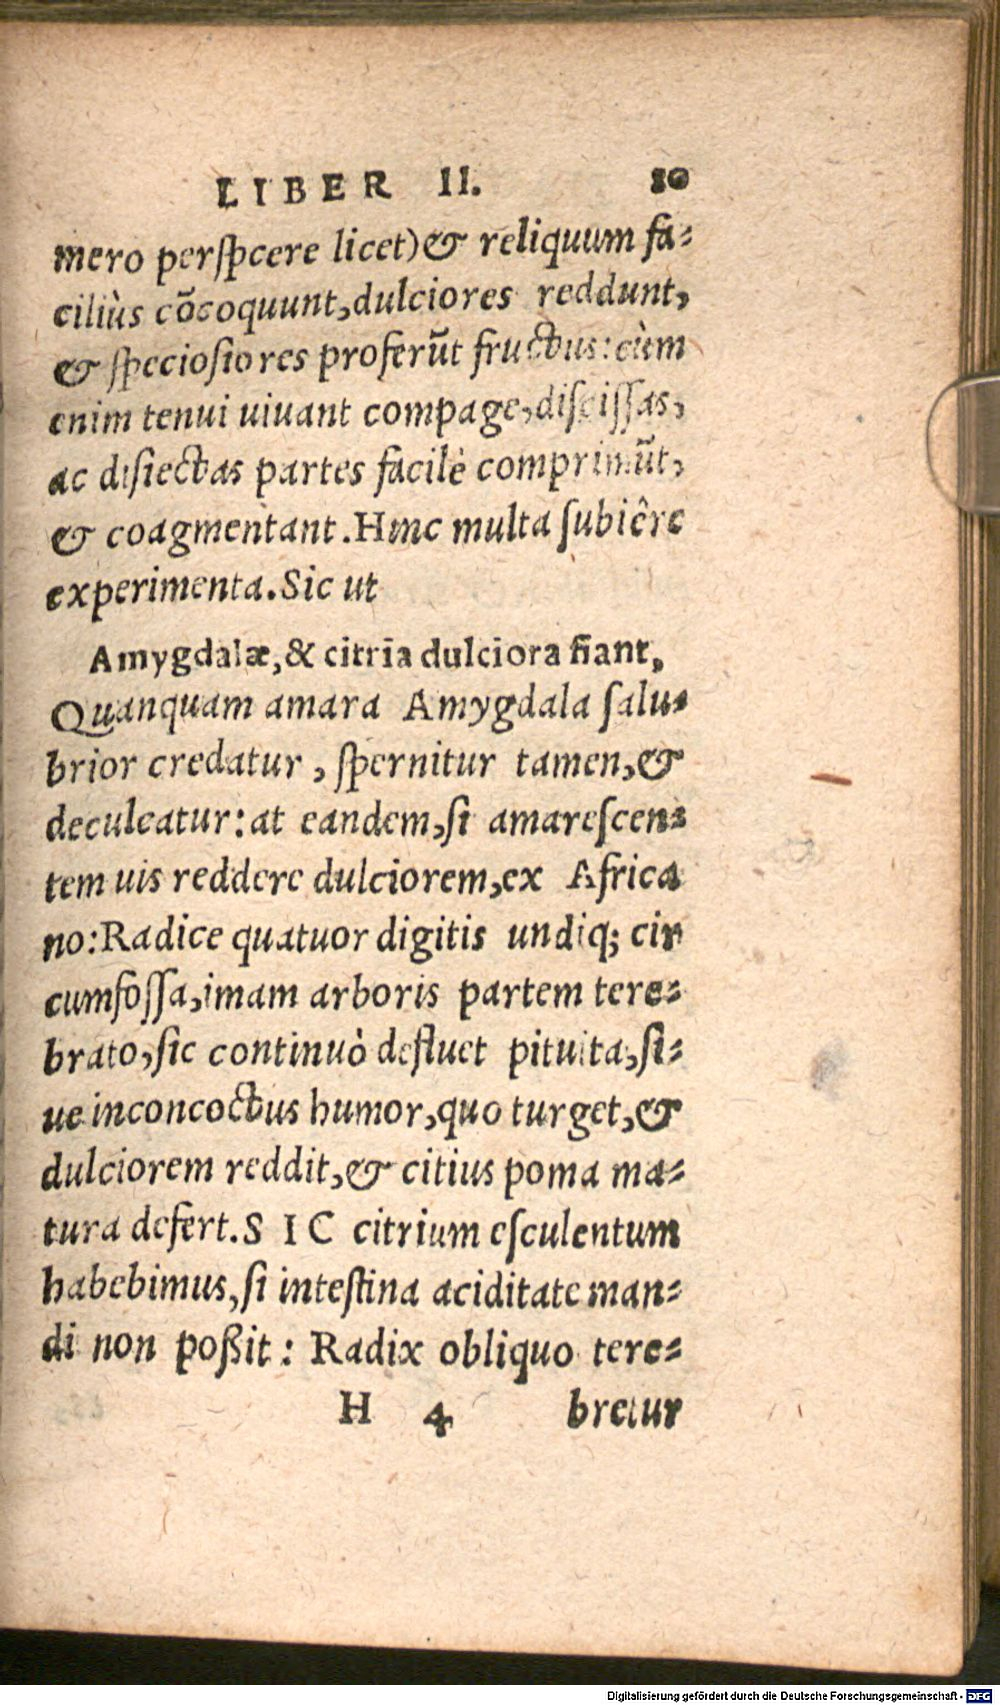 LIBER II. 80
mero perspcere licet) & reliquum fa-
ciliùs cōcoquunt, dulciores reddunt,
& speciosiores proferūt fructus: cùm
enim tenui uiuant compage, discissas,
ac disiectas partes facilè comprimūt,
& coagmentant. Hinc multa subiêre
experimenta. Sic ut
Amygdalæ, & citria dulciora fiant,
Quanquam amara Amygdala salu-
brior credatur, spernitur tamen, &
deculcatur: at eandem, si amarescen-
tem uis reddere dulciorem, ex Africa
no: Radice quatuor digitis undiq; cir
cumfossa, imam arboris partem tere-
brato, sic continuò defluet pituita, si-
ue inconcoctus humor, quo turget, &
dulciorem reddit, & citius poma ma-
tura defert. SIC citrium esculentum
habebimus, si intestina aciditate man-
di non poßit: Radix obliquo tere-
H 4 bretur
Digitalisierung gefördert durch die Deutsche Forschungsgemeinschaft - DFG